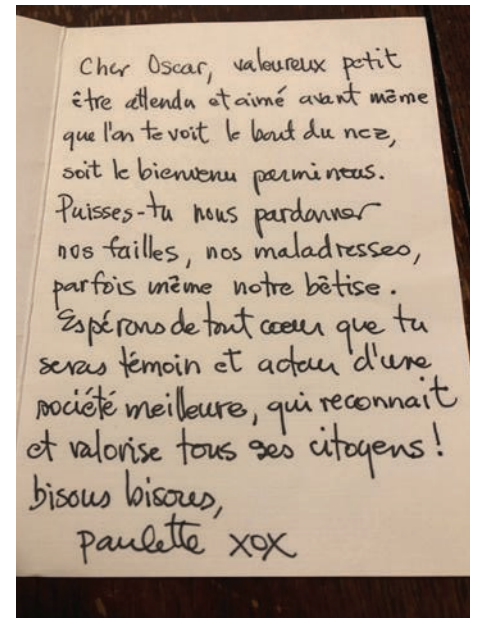 Cher Oscar, valeureux petit
être attendu et aimé avant même
que l'on te voit le bout du nez,
soit le bienvenu parmi nous.
Puisses-tu nous pardonner
nos failles, nos maladresses,
parfois même notre bêtise.
Espérons de tout coeur que tu
seras témoin et acteur d'une
société meilleure, qui reconnait
et valorise tous ses citoyens!
bisous bisous,
Paulette xox